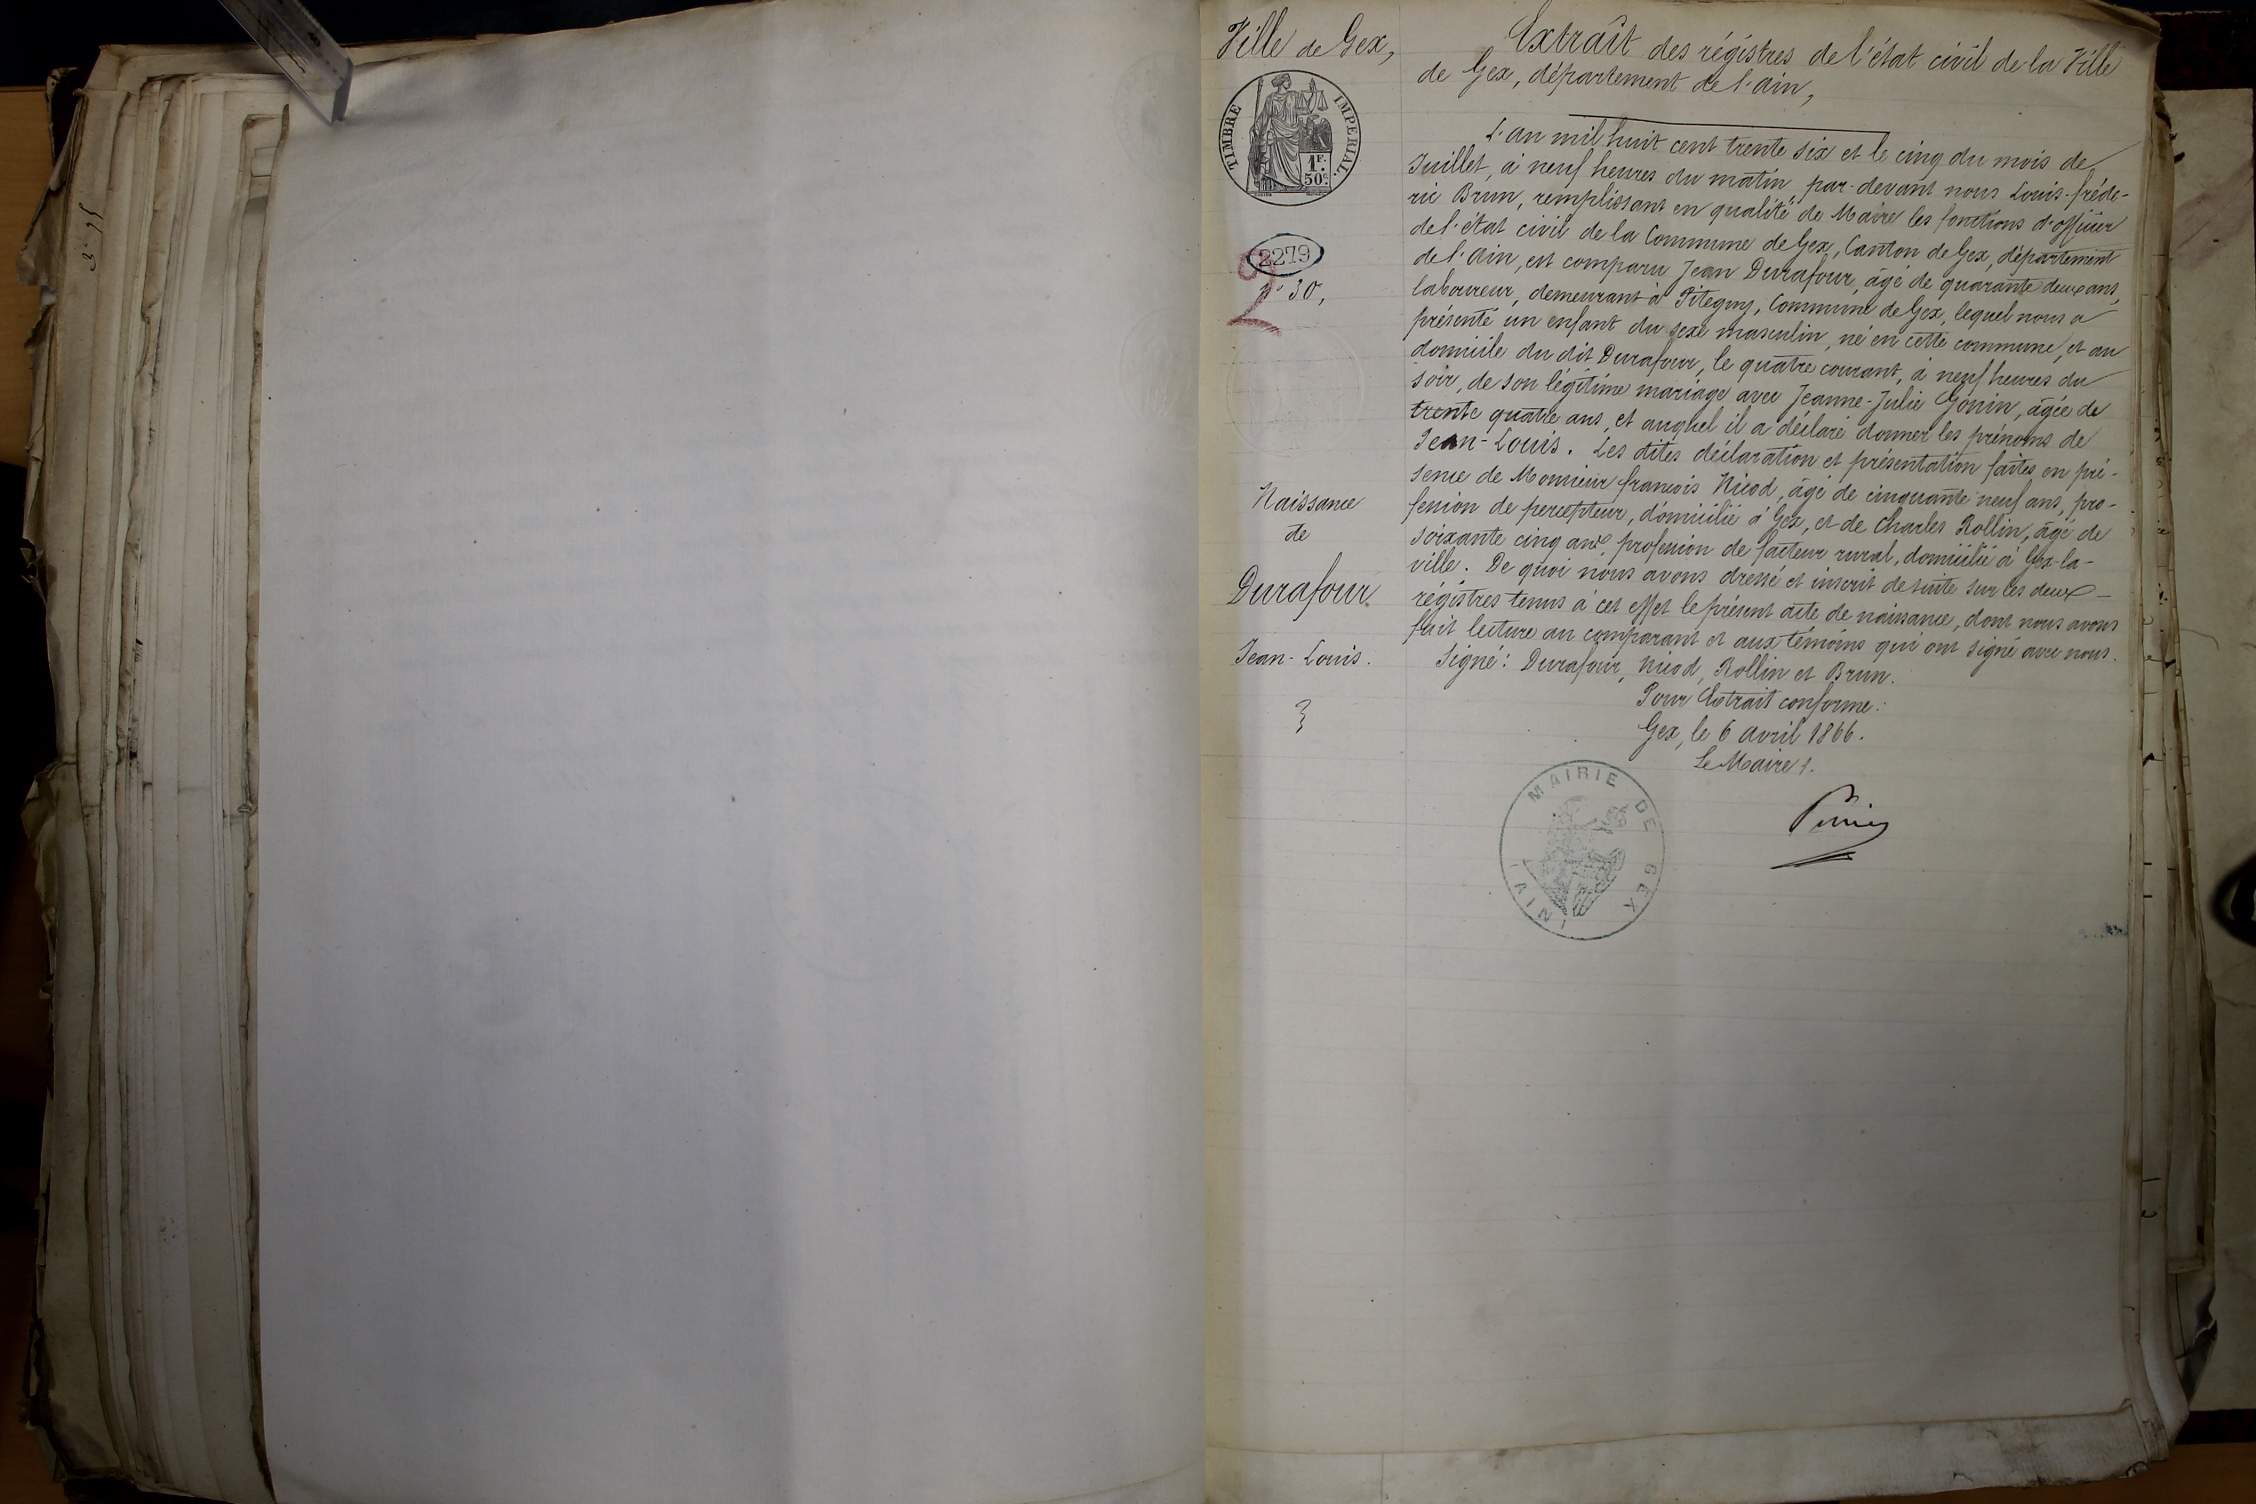 Ville de Gex,
TIMBRE IMPERIAL.
1F.
50c.
2279
2
No 30,
Naissance
de
Durafour
Jean-Louis.
Extrait des régistres de l'état civil de la Ville
de Gex, département de l'ain,
L'an mil huit cent trente six et le cinq du mois de
Juillet, à neuf heures du matin, par-devant nous Louis-fréde-
ric Brun, remplissant en qualité de Maire les fonctions d'officier
de l'état civil de la Commune de Gex, Canton de Gex, département
de l'ain, est comparu Jean Durafour, âgé de quarante deux ans,
laboureur, demeurant à Pitegny, Commune de Gex, lequel nous a
présenté un enfant du sexe masculin, né en cette commune, et au
domicile du dit Durafour, le quatre courant, à neuf heures du
soir, de son légitime mariage avec Jeanne-Julie Gonin, âgée de
trente quatre ans, et auquel il a déclaré donner les prénoms de
Jean-Louis. Les dites déclaration et présentation faites en pré-
sence de Monsieur francois Nicod, âgé de cinquante neuf ans, pro-
fession de percepteur, domicilié à Gex, et de Charles Rollin, âgé de
soixante cinq ans, profession de facteur rural, domicilié à Gex-la-
ville. De quoi nous avons dressé et inscrit de suite sur les deux
régistres tenus à cet effet le présent acte de naissance, dont nous avons
fait lecture au comparant et aux témoins qui ont signé avec nous.
Signé: Durafour, Nicod, Rollin et Brun.
Pour Extrait conforme:
Gex, le 6 avril 1866.
Le Maire
MAIRIE DE GEX
(AIN)